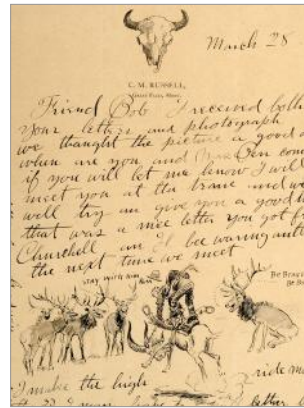 March 28
C. M. RUSSELL,
Great Falls, Mont.
Friend Bob I received both
your letters and photograph
we thaught the picture a good o
when are you and Mrs Ben com
if you will let me know I will
meet you at the trane and w
will try an give you a good t
that was a nice letter you got f
Churchell an Il bee waring antl
the next time we meet
STAY WITH HIM
BE BRAV
BE B
I make the high
ride m
letter